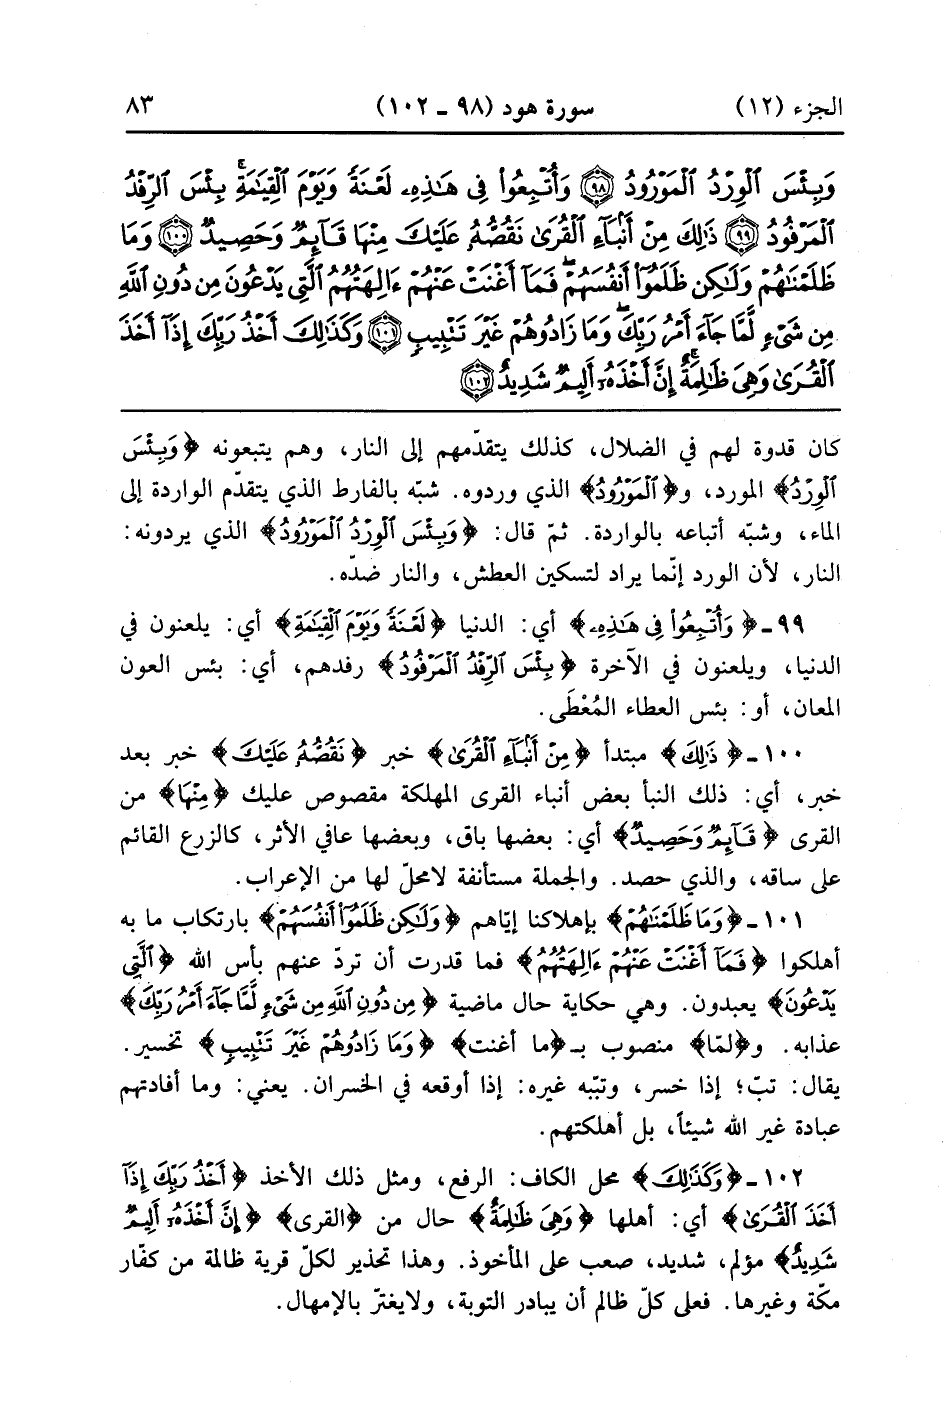 الجزء (١٢) سورة هود (٩٨ - ١٠٢) ٨٣
وَبِئْسَ ٱلْوِرْدُ ٱلْمَوْرُودُ ﴿٩٨﴾ وَأُتْبِعُوا۟ فِى هَـٰذِهِۦ لَعْنَةً وَيَوْمَ ٱلْقِيَـٰمَةِ ۚ بِئْسَ ٱلرِّفْدُ
ٱلْمَرْفُودُ ﴿٩٩﴾ ذَٰلِكَ مِنْ أَنۢبَآءِ ٱلْقُرَىٰ نَقُصُّهُۥ عَلَيْكَ مِنْهَا قَآئِمٌ وَحَصِيدٌ ﴿١٠٠﴾ وَمَا
ظَلَمْنَـٰهُمْ وَلَـٰكِن ظَلَمُوٓا۟ أَنفُسَهُمْ ۖ فَمَآ أَغْنَتْ عَنْهُمْ ءَالِهَتُهُمُ ٱلَّتِى يَدْعُونَ مِن دُونِ ٱللَّهِ
مِن شَىْءٍ لَّمَّا جَآءَ أَمْرُ رَبِّكَ ۖ وَمَا زَادُوهُمْ غَيْرَ تَتْبِيبٍ ﴿١٠١﴾ وَكَذَٰلِكَ أَخْذُ رَبِّكَ إِذَآ أَخَذَ
ٱلْقُرَىٰ وَهِىَ ظَـٰلِمَةٌ ۚ إِنَّ أَخْذَهُۥٓ أَلِيمٌ شَدِيدٌ ﴿١٠٢﴾
كان قدوة لهم في الضلال، كذلك يتقدّمهم إلى النار، وهم يتبعونه ﴿وَبِئْسَ
ٱلْوِرْدُ﴾ المورد، و﴿ٱلْمَوْرُودُ﴾ الذي وردوه. شبّه بالفارط الذي يتقدّم الواردة إلى
الماء، وشبّه أتباعه بالواردة. ثمّ قال: ﴿وَبِئْسَ ٱلْوِرْدُ ٱلْمَوْرُودُ﴾ الذي يردونه:
النار، لأن الورد إنّما يراد لتسكين العطش، والنار ضدّه.
٩٩ـ ﴿وَأُتْبِعُوا۟ فِى هَـٰذِهِۦ﴾ أي: الدنيا ﴿لَعْنَةً وَيَوْمَ ٱلْقِيَـٰمَةِ﴾ أي: يلعنون في
الدنيا، ويلعنون في الآخرة ﴿بِئْسَ ٱلرِّفْدُ ٱلْمَرْفُودُ﴾ رفدهم، أي: بئس العون
المعان، أو: بئس العطاء المُعْطَى.
١٠٠ـ ﴿ذَٰلِكَ﴾ مبتدأ ﴿مِنْ أَنۢبَآءِ ٱلْقُرَىٰ﴾ خبر ﴿نَقُصُّهُۥ عَلَيْكَ﴾ خبر بعد
خبر، أي: ذلك النبأ بعض أنباء القرى المهلكة مقصوص عليك ﴿مِنْهَا﴾ من
القرى ﴿قَآئِمٌ وَحَصِيدٌ﴾ أي: بعضها باق، وبعضها عافي الأثر، كالزرع القائم
على ساقه، والذي حصد. والجملة مستأنفة لامحلّ لها من الإعراب.
١٠١ـ ﴿وَمَا ظَلَمْنَـٰهُمْ﴾ بإهلاكنا إيّاهم ﴿وَلَـٰكِن ظَلَمُوٓا۟ أَنفُسَهُمْ﴾ بارتكاب ما به
أهلكوا ﴿فَمَآ أَغْنَتْ عَنْهُمْ ءَالِهَتُهُمُ﴾ فما قدرت أن تردّ عنهم بأس الله ﴿ٱلَّتِى
يَدْعُونَ﴾ يعبدون. وهي حكاية حال ماضية ﴿مِن دُونِ ٱللَّهِ مِن شَىْءٍ لَّمَّا جَآءَ أَمْرُ رَبِّكَ﴾
عذابه. و﴿لمّا﴾ منصوب بـ﴿ما أغنت﴾ ﴿وَمَا زَادُوهُمْ غَيْرَ تَتْبِيبٍ﴾ تخسير.
يقال: تبّ؛ إذا خسر، وتبّبه غيره: إذا أوقعه في الخسران. يعني: وما أفادتهم
عبادة غير الله شيئاً، بل أهلكتهم.
١٠٢ـ ﴿وَكَذَٰلِكَ﴾ محل الكاف: الرفع، ومثل ذلك الأخذ ﴿أَخْذُ رَبِّكَ إِذَآ
أَخَذَ ٱلْقُرَىٰ﴾ أي: أهلها ﴿وَهِىَ ظَـٰلِمَةٌ﴾ حال من ﴿القرى﴾ ﴿إِنَّ أَخْذَهُۥٓ أَلِيمٌ
شَدِيدٌ﴾ مؤلم، شديد، صعب على المأخوذ. وهذا تحذير لكلّ قرية ظالمة من كفّار
مكّة وغيرها. فعلى كلّ ظالم أن يبادر التوبة، ولايغترّ بالإمهال.